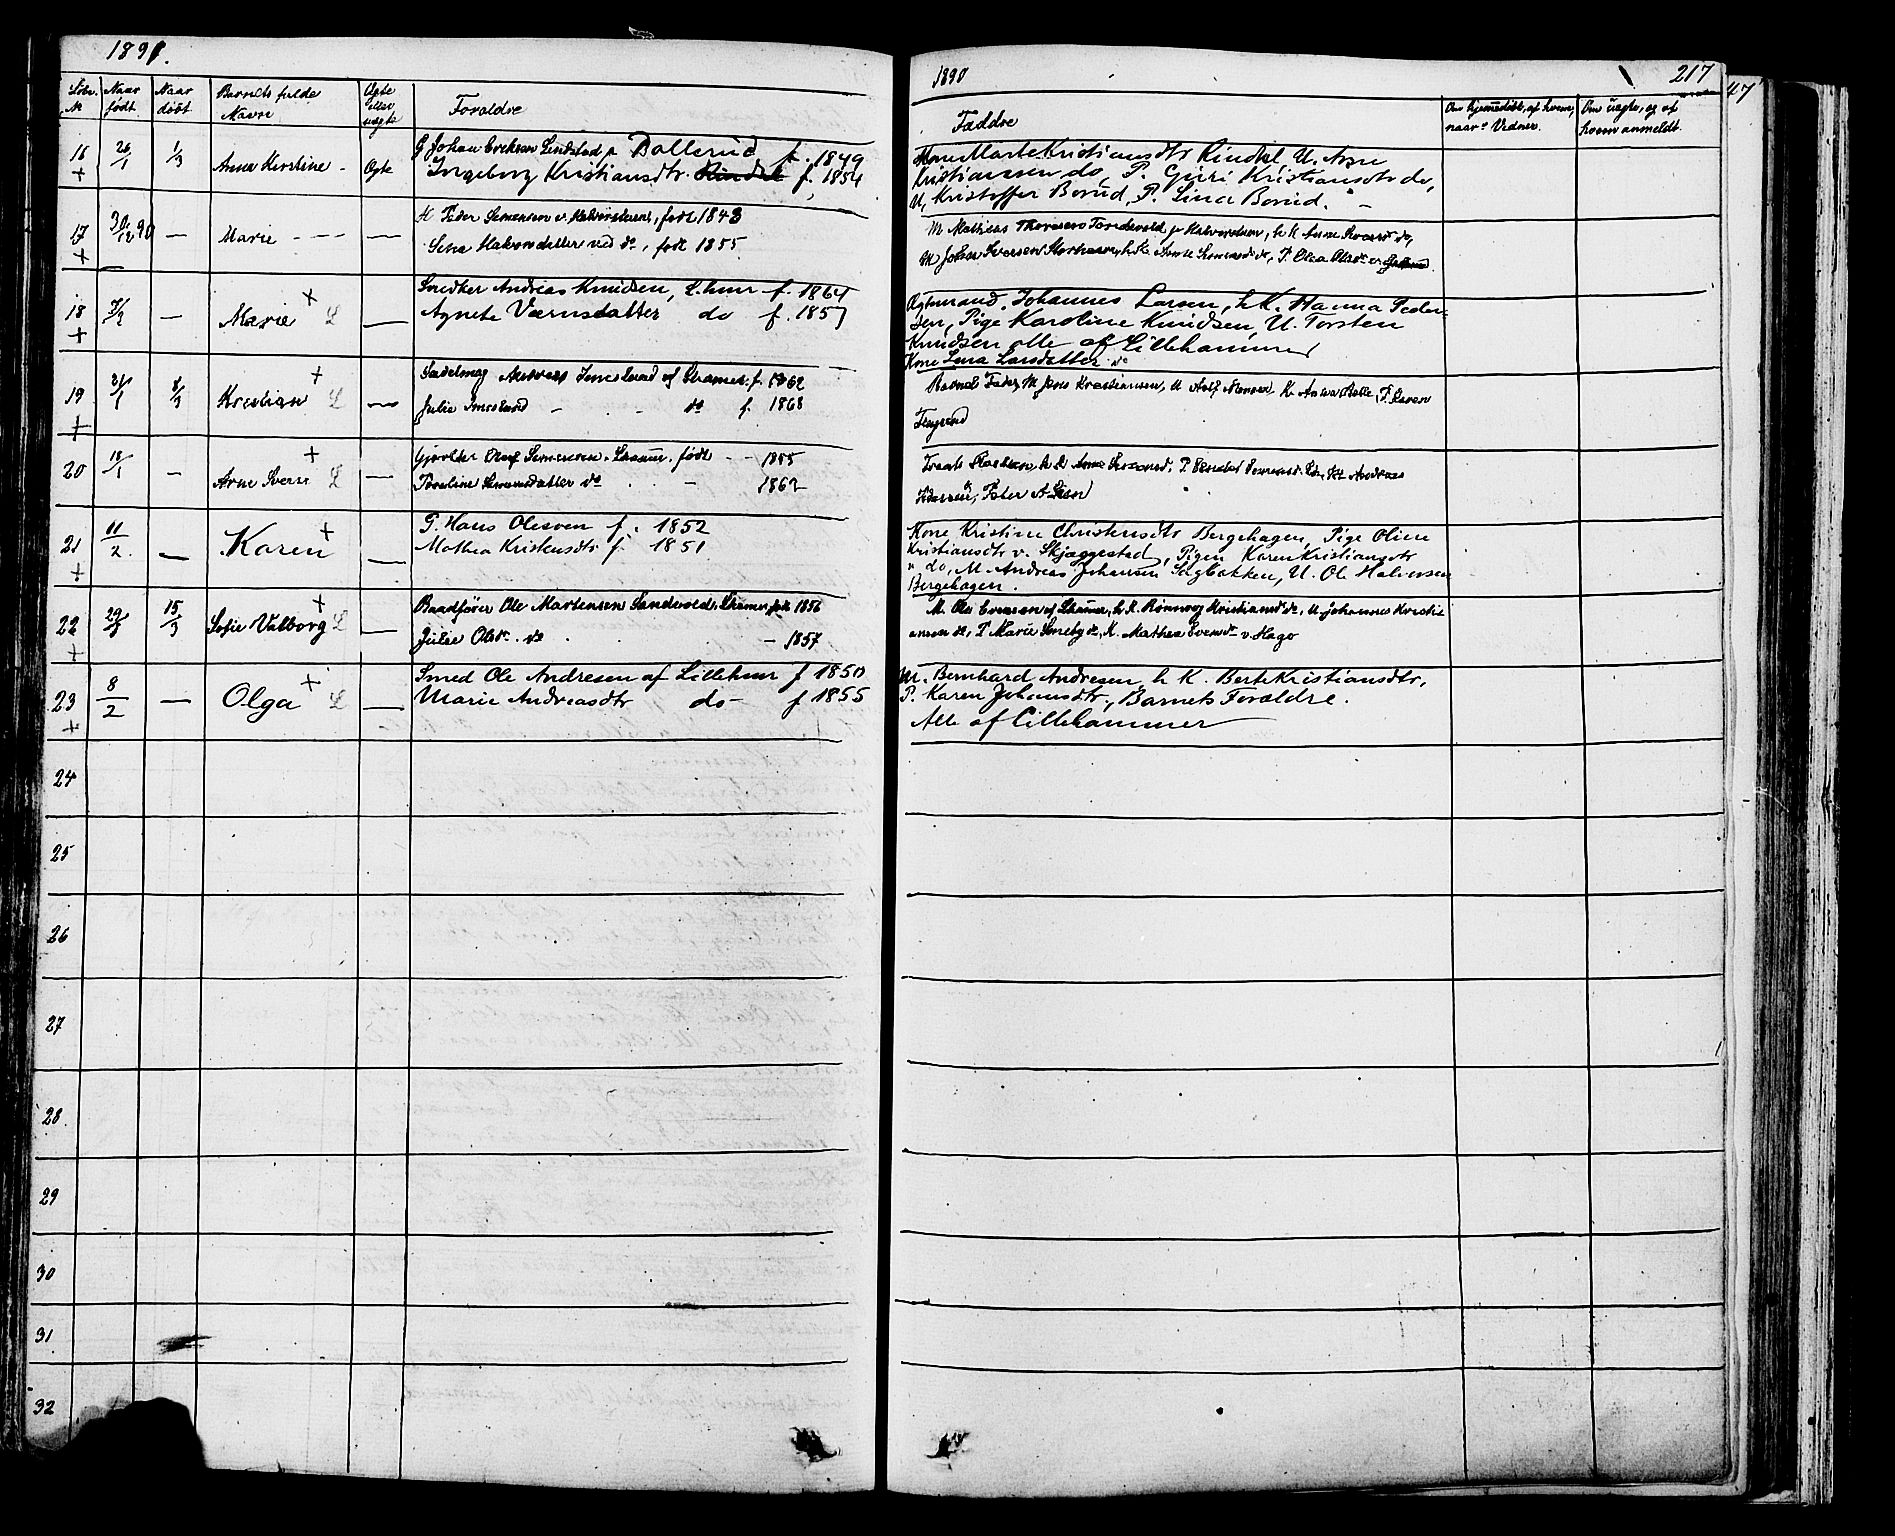 1891.
Løbe. № Naar født. Naar døbt Barnets fulde Navne Ægte eller uægte Forældre
16 + 26/1 1/3 Anna Kirstine - Ægte G Johan Erikson Lindstad p Ballerud f. 1849
Ingeborg Kristiansdtr. f. 1854
17 + 30/12 90 — Marie - - - — H Peder Simenson v. født 1848
Lina Halvorsdatter ved do, født 1855.
18 + 3/2 — Marie + L — Snedker Andreas Knudsen, L.hmr f. 1864
Agnete Værnsdatter do f. 1857
19 + 21/1 8/3 Kristian + L — Andreas af L.hamer. f. 1862
Julie - - - do f. 1868
20 18/1 - Arne Sverre + L — Olaf Simensen. L.hamr. født - - 1855
Simensdatter do . . - 1862
21 + 11/2. — Karen + — G. Hans Olesven f. 1852
Mathea Kristensdtr f. 1851
22 + 15/3 Sofie Valborg + L — Baadfører Ole Martensen Sandvold, L.hamer født 1856
Julie Olsdr. do . - 1857
23 + 8/2 — Olga + L — Smed Ole Andresen af Lillehmr f 1850
Marie Andreasdtr do - f 1855
24
25
26
27
28.
29
30
31
32
1890 217
47
Faddre Om hjemmedøbt, af hvem, naar o Vidner. Om uægte, og af hvem anmeldt.
Kone Marte Kristiansdtr Rindal, U. Arne
Kristianssen do, P. Guri Kristiansdtr do,
U, Kristoffer Borud, P. Lina Borud. -
M Mathias Thoresen p , h K Anne do,
M Johan Iversen , h. K. do, P. Olea Olsdr v.
Ægtmand. Johannes Larsen, h K. Hanna Peder-
sen, Pige Karoline Knudsen, U. Torsten
Knudsen alle af Lillehammer
Kone Lina Larsdatter do
Barnets Fader, M Jens Kristiansen, U Adolf K. P. Karen
K Anne P. Andreas
Fader
Kone Kristine Christensdtr Bergehagen, Pige Oline
Kristiansdtr v. Skjæggestad, Pigen Karen Kristiansdtr
" do, M. Andreas Johansen Sagbakken, U. Ole Halvorsen
Bergehagen.
M. Ole Evensen af L.hamer, h. K. Rønnaug Kristiansd do, U. Johannes Kristi-
ansen do, P Marie Smeby do, K. Mathea Evensdr v. Hage
M. Bernhard Andresen h K. Berte Kristiansdtr,
P. Karen Johansdtr, Barnets Forældre.
Alle af Lillehammer